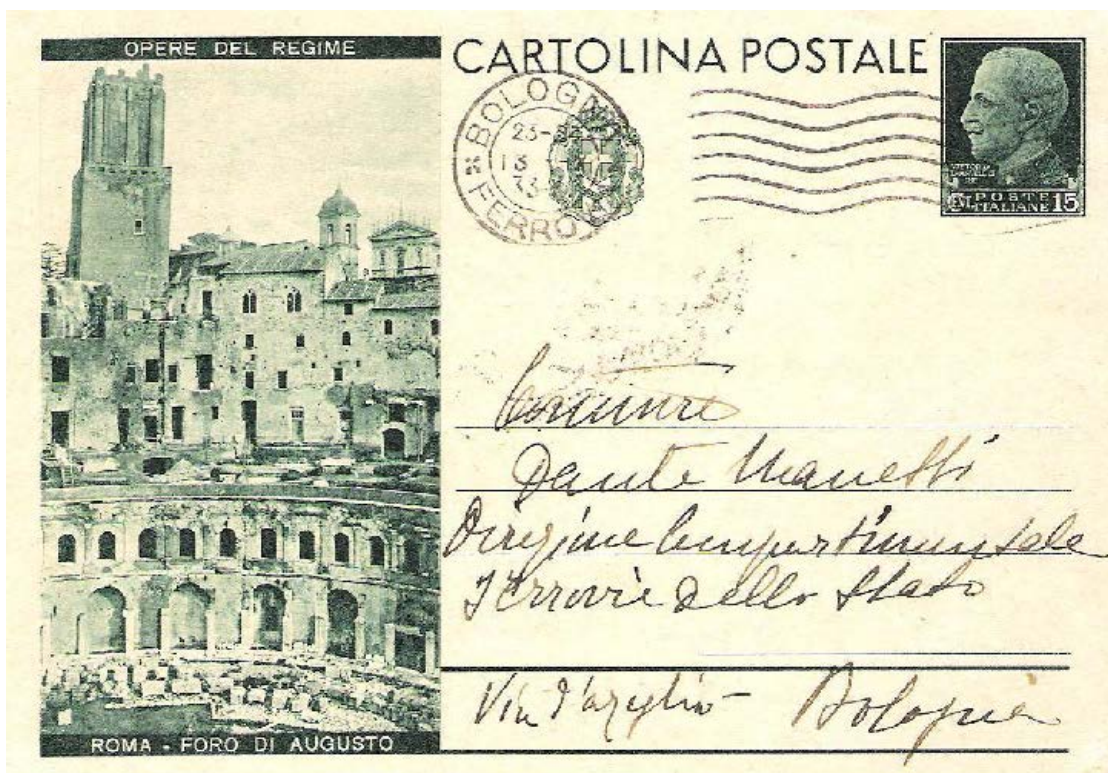 OPERE DEL REGIME
CARTOLINA POSTALE
BOLOGNA
23-
13
33
FERRO
VITTORIO
EMANUELE III
RE
POSTE
CENT. ITALIANE 15
Dante Manetti
Direzione Compartimentale
Ferrovie dello Stato
Via d'Azeglio - Bologna
ROMA - FORO DI AUGUSTO